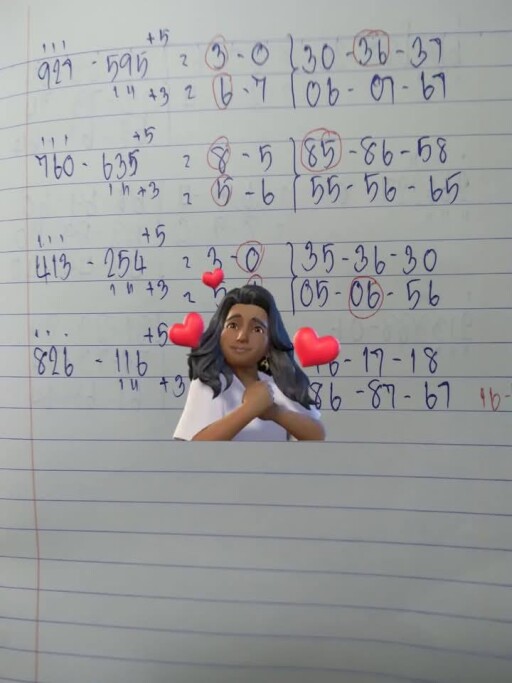 +5
927 - 595 = 3 - 0 } 30 - 36 - 37
+3 = 6 - 7 } 06 - 07 - 67
+5
760 - 635 = 8 - 5 } 85 - 86 - 58
+3 = 5 - 6 } 55 - 56 - 65
+5
413 - 254 = 3 - 0 } 35 - 36 - 30
+3 = 05 - 06 - 56
+5
826 - 116 - 17 - 18
+3 86 - 87 - 67 16-